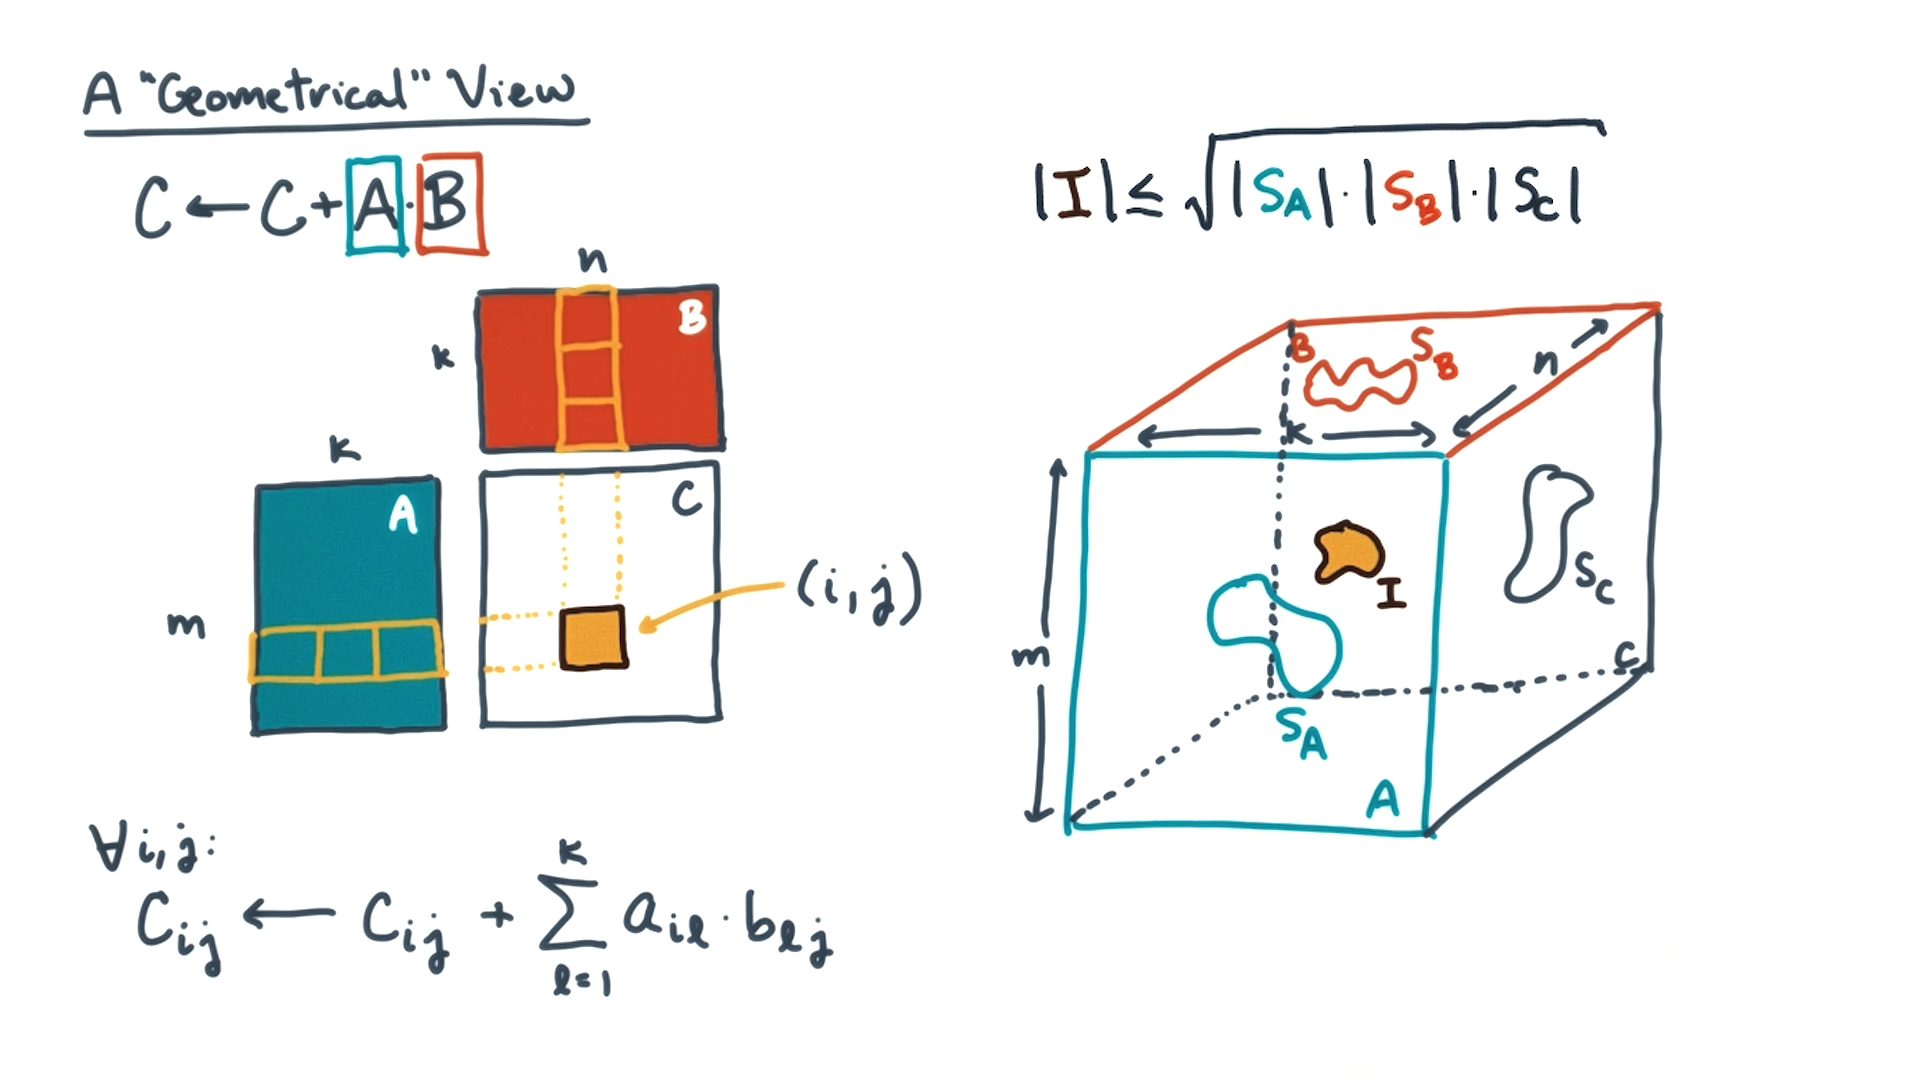 A "Geometrical" View
C ← C + A · B
n
B
k
k
A
m
C
(i, j)
∀i, j:
C_ij ← C_ij + ∑_{l=1}^{k} a_il · b_lj
|I| ≤ √|S_A| · |S_B| · |S_C|
B
S_B
n
k
m
I
S_C
S_A
C
A